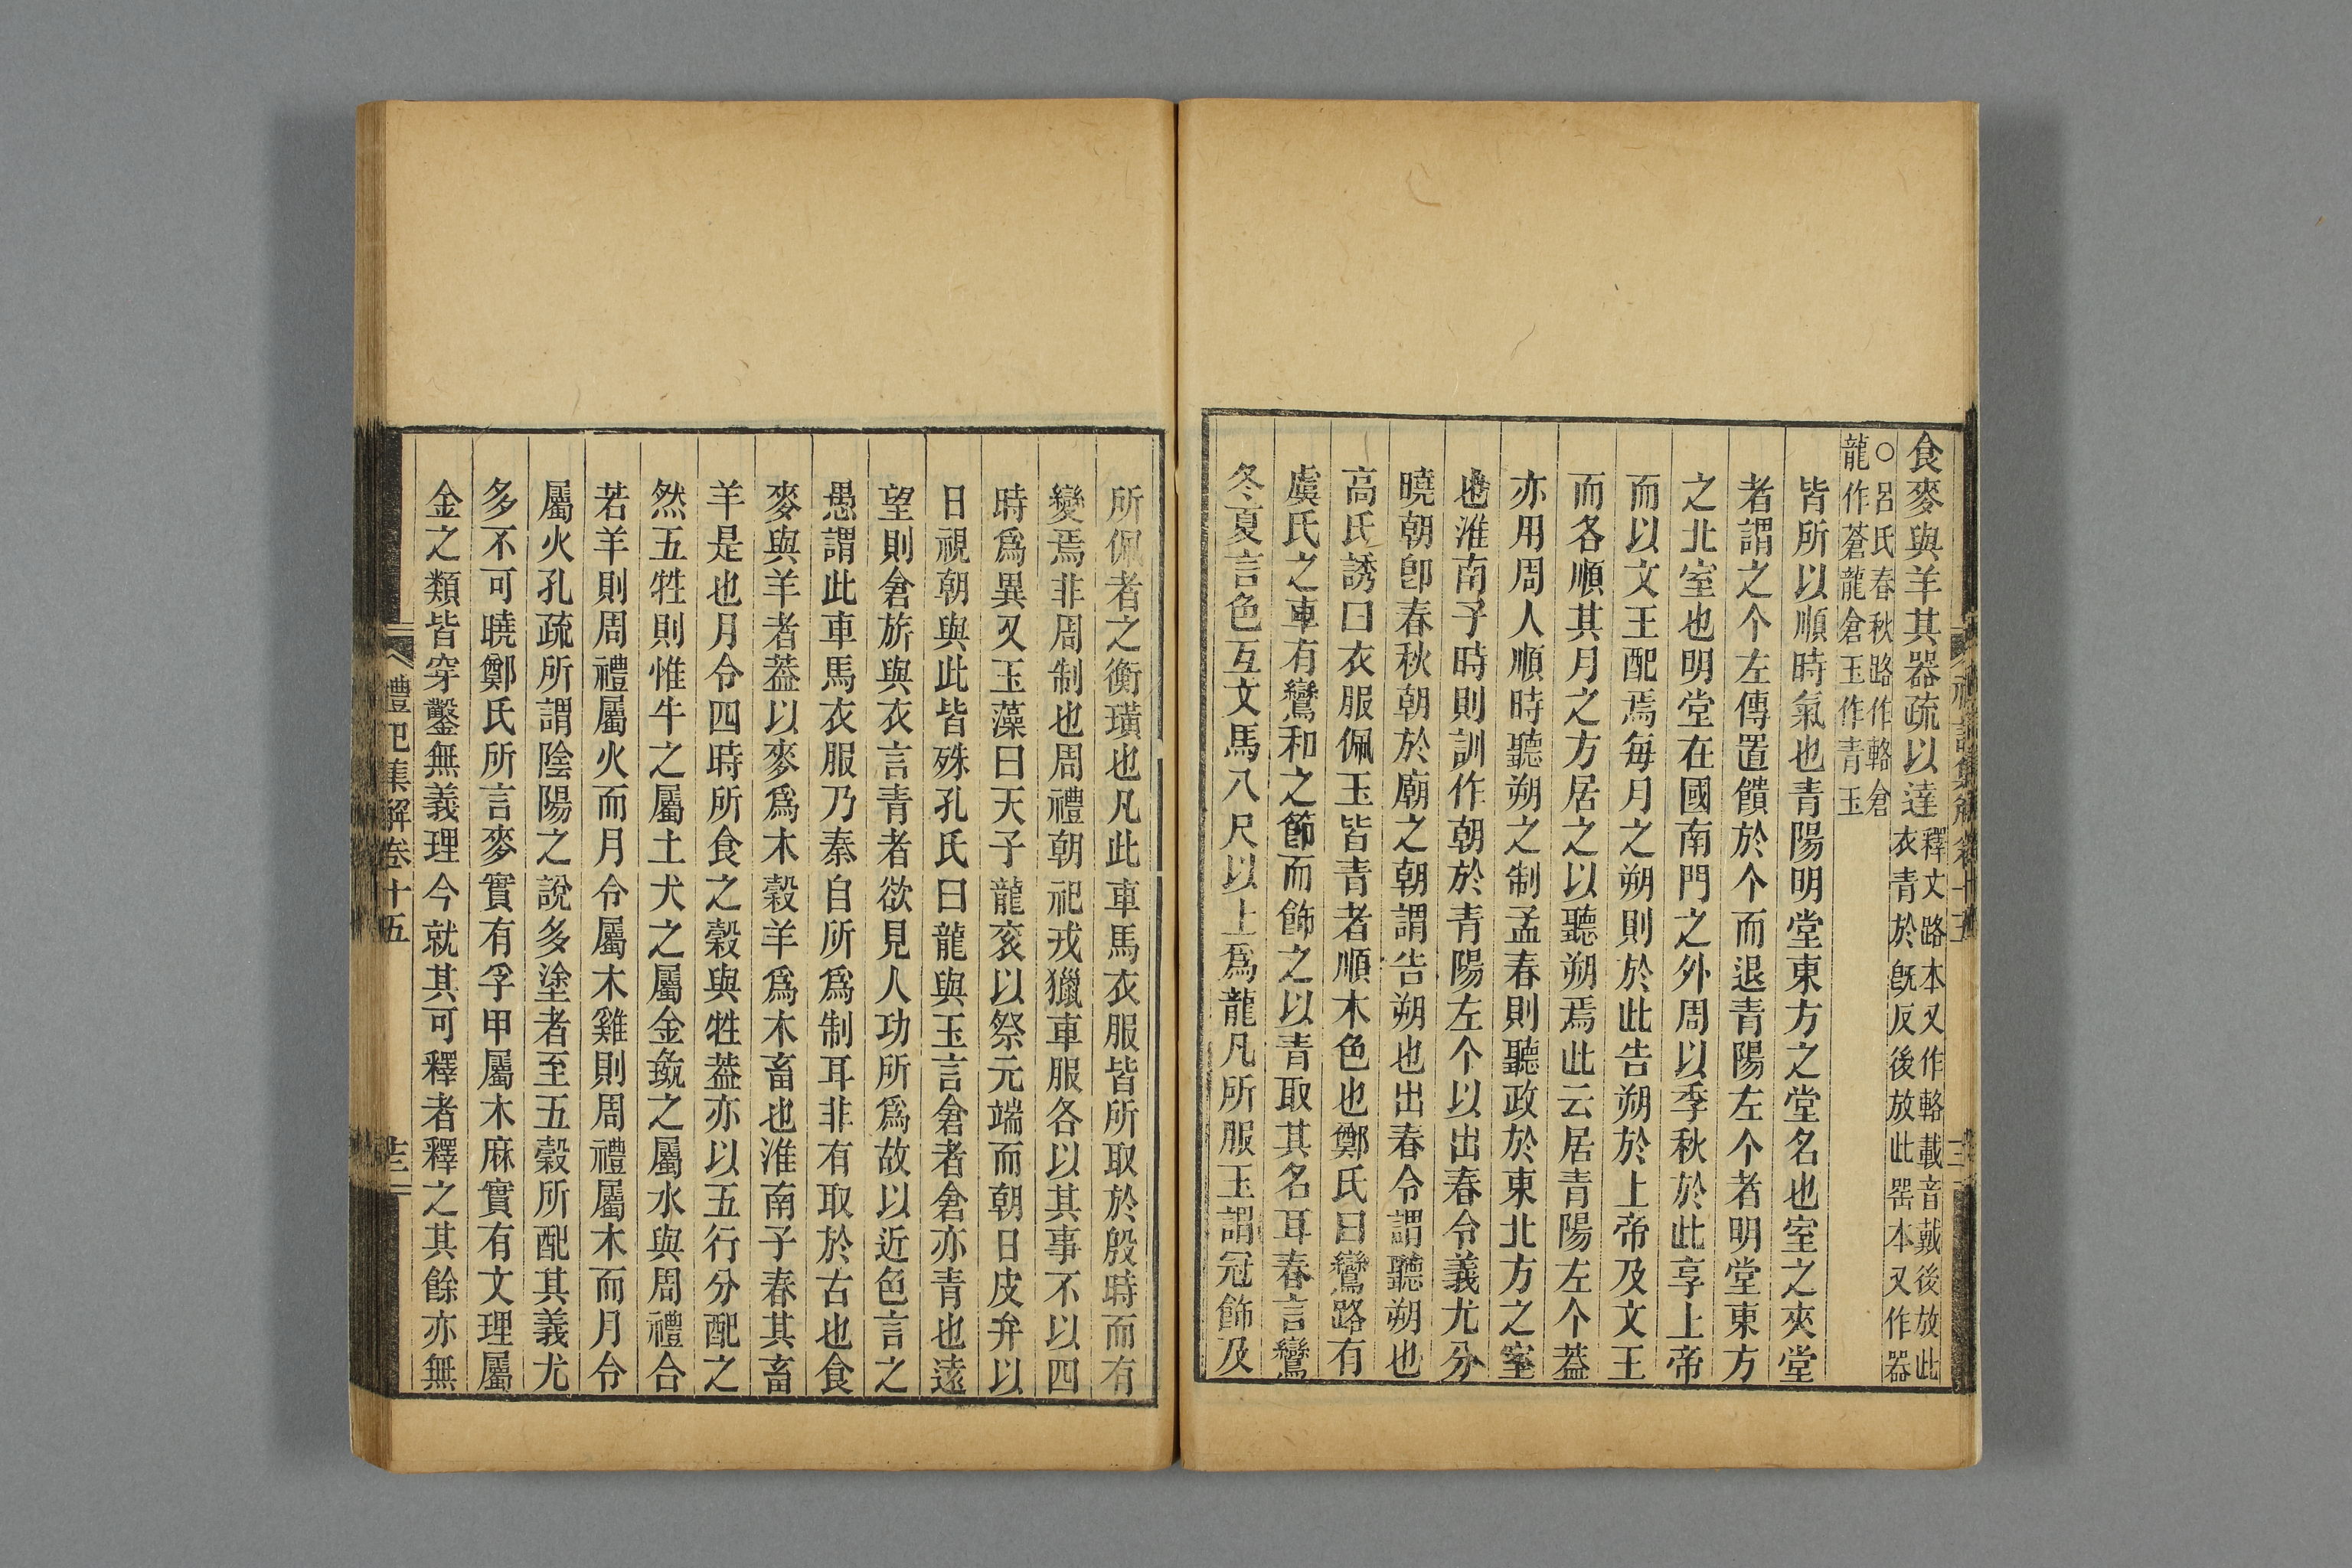 食麥與羊其器疏以達釋文路本又作輅載音戴後放此衣青於旣反後放此噐本又作器
○呂氏春秋路作輅倉龍作蒼龍倉玉作青玉
皆所以順時氣也青陽明堂東方之堂名也室之夾堂
者謂之个左傳置饋於个而退青陽左个者明堂東方
之北室也明堂在國南門之外周以季秋於此享上帝
而以文王配焉每月之朔則於此告朔於上帝及文王
而各順其月之方居之以聽朔焉此云居青陽左个葢
亦用周人順時聽朔之制孟春則聽政於東北方之室
也淮南子時則訓作朝於青陽左个以出春令義尤分
曉朝卽春秋朝於廟之朝謂告朔也出春令謂聽朔也
高氏誘曰衣服佩玉皆青者順木色也鄭氏曰鸞路有
虞氏之車有鸞和之節而飾之以青取其名耳春言鸞
冬夏言色互文馬八尺以上爲龍凡所服玉謂冠飾及
所佩者之衡璜也凡此車馬衣服皆所取於殷時而有
變焉非周制也周禮朝祀戎獵車服各以其事不以四
時爲異又玉藻曰天子龍衮以祭元端而朝日皮弁以
日視朝與此皆殊孔氏曰龍與玉言倉者倉亦青也遠
望則倉旂與衣言青者欲見人功所爲故以近色言之
愚謂此車馬衣服乃秦自所爲制耳非有取於古也食
麥與羊者葢以麥爲木穀羊爲木畜也淮南子春其畜
羊是也月令四時所食之穀與牲葢亦以五行分配之
然五牲則惟牛之屬土犬之屬金彘之屬水與周禮合
若羊則周禮屬火而月令屬木雞則周禮屬木而月令
屬火孔疏所謂陰陽之說多塗者至五穀所配其義尤
多不可曉鄭氏所言麥實有孚甲屬木麻實有文理屬
金之類皆穿鑿無義理今就其可釋者釋之其餘亦無
禮記集解卷十五